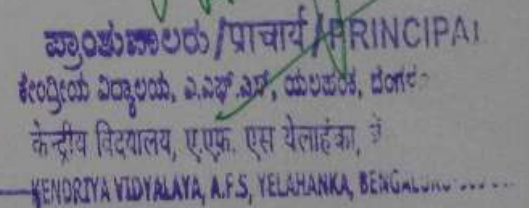 ಪ್ರಾಂಶುಪಾಲರು/प्राचार्य/PRINCIPAL
ಕೇಂದ್ರೀಯ ವಿದ್ಯಾಲಯ, ಎ.ಎಫ್.ಎಸ್, ಯಲಹಂಕ,
केन्द्रीय विद्यालय, ए.एफ. एस येलाहंका,
KENDRIYA VIDYALAYA, A.F.S, YELAHANKA,